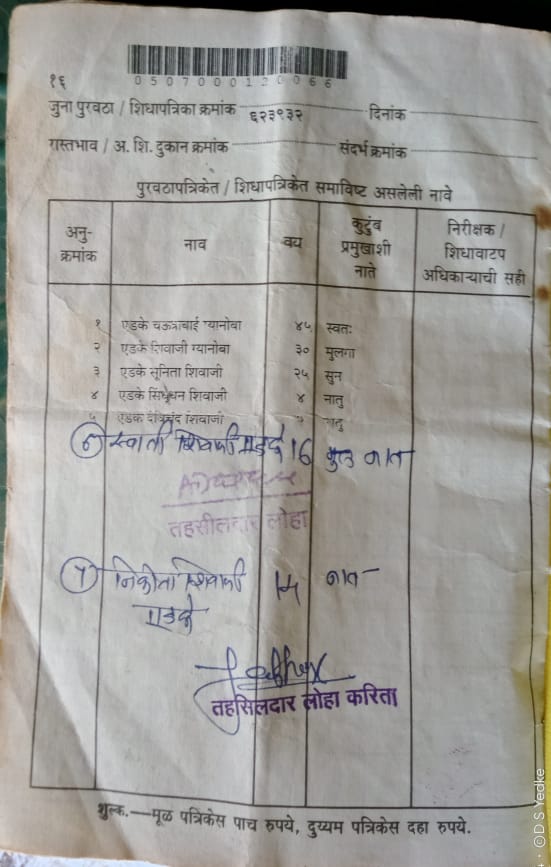 0507000120066
१६
जुना पुरवठा / शिधापत्रिका क्रमांक ६२३९३२ दिनांक
रास्तभाव / अ. शि. दुकान क्रमांक संदर्भ क्रमांक
पुरवठापत्रिकेत / शिधापत्रिकेत समाविष्ट असलेली नावे
अनु-क्रमांक नाव वय कुटुंब प्रमुखाशी नाते निरीक्षक / शिधावाटप अधिकाऱ्याची सही
१ एडके चऊत्राबाई ग्यानोबा ४५ स्वतः
२ एडके शिवाजी ग्यानोबा ३० मुलगा
३ एडके सूनिता शिवाजी २५ सुन
४ एडके सिंधुधन शिवाजी ४ नातु
५ एडके शिवाजी नातु
६ स्वाती शिवाजी एडके 16 नात
तहसीलदार लोहा
7 निकीता शिवाजी 14 नात
एडके
तहसिलदार लोहा करिता
शुल्क.—मूळ पत्रिकेस पाच रुपये, दुय्यम पत्रिकेस दहा रुपये.
©D S Yedke